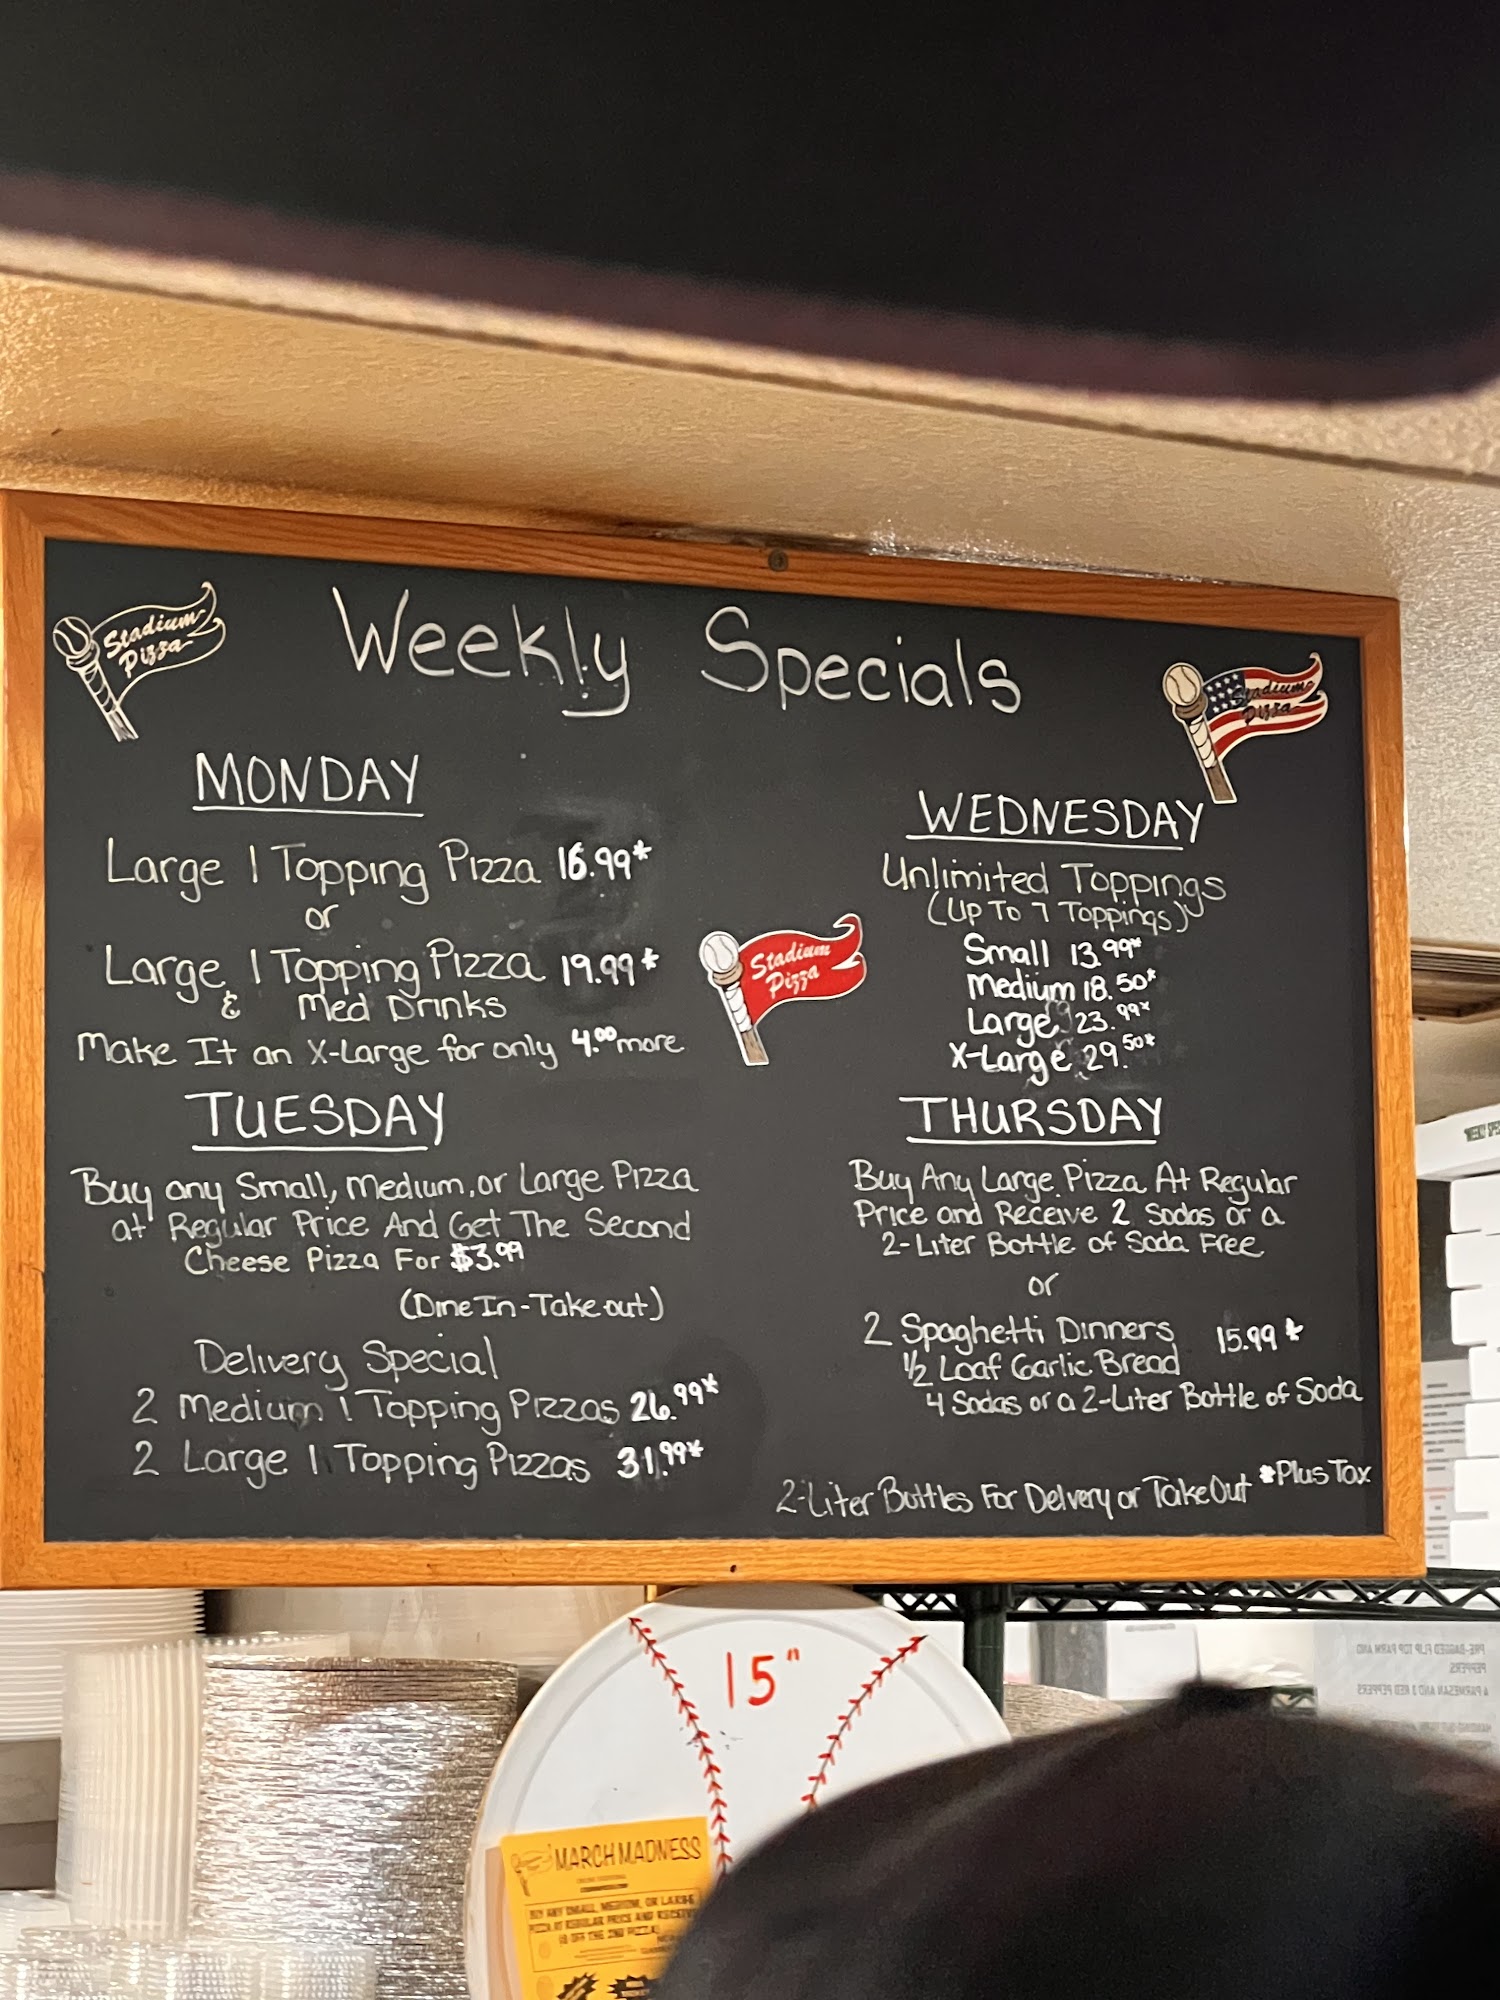 Weekly Specials
Stadium
Pizza
Stadium
Pizza
MONDAY
Large 1 Topping Pizza 16.99*
or
Large 1 Topping Pizza 19.99*
& Med Drinks
Make It an X-Large for only 4.00 more
TUESDAY
Buy any Small, Medium, or Large Pizza
at Regular Price And Get The Second
Cheese Pizza For $3.99
(Dine In-Take out)
Delivery Special
2 Medium 1 Topping Pizzas 26.99*
2 Large 1 Topping Pizzas 31.99*
Stadium
Pizza
WEDNESDAY
Unlimited Toppings
(Up To 7 Toppings)
Small 13.99*
Medium 18.50*
Large 23.99*
X-Large 29.50*
THURSDAY
Buy Any Large Pizza At Regular
Price and Receive 2 Sodas or a
2-Liter Bottle of Soda Free
or
2 Spaghetti Dinners 15.99*
1/2 Loaf Garlic Bread
4 Sodas or a 2-Liter Bottle of Soda
2-Liter Bottles For Delivery or TakeOut *Plus Tax
15"
MARCH MADNESS
BUY ANY SMALL, MEDIUM, OR LARGE
PIZZA AT REGULAR PRICE AND RECEIVE
OFF THE 2ND PIZZA!
PRE-BAGGED FLIP TOP PARM AND
PEPPERS